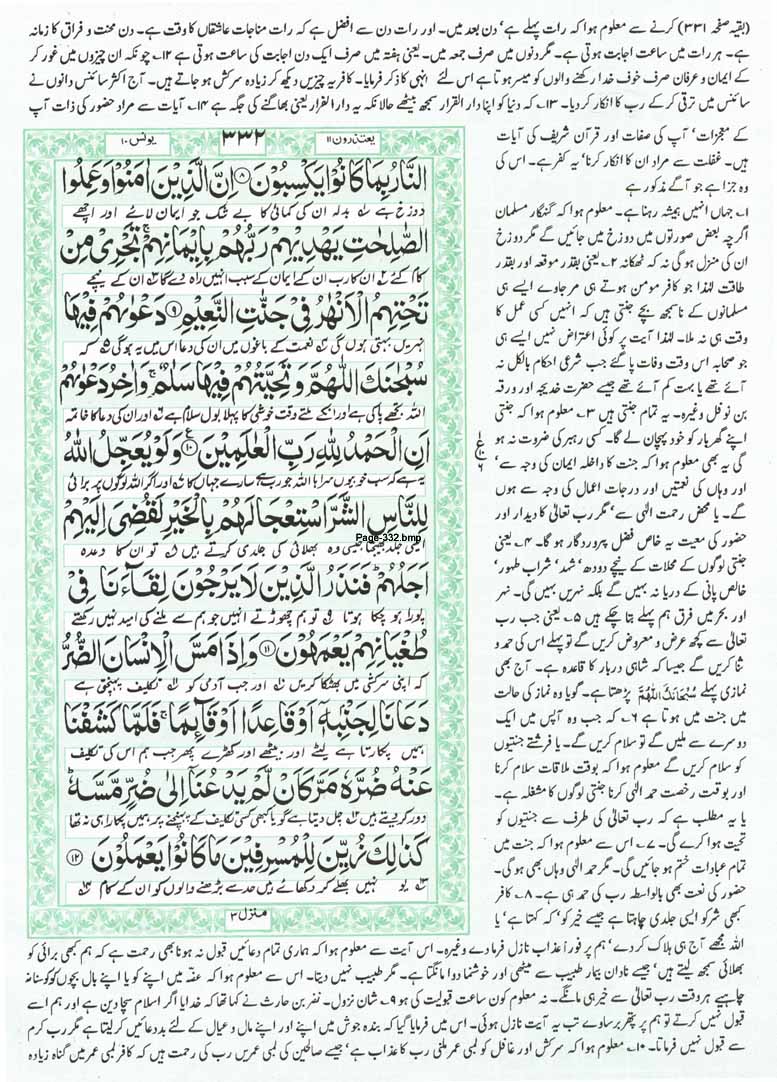 (بقیہ صفحہ ۳۳۱) کرنے سے معلوم ہوا کہ رات پہلے ہے' دن بعد میں۔ اور رات دن سے افضل ہے کہ رات مناجات عاشقاں کا وقت ہے۔ دن محنت و فراق کا زمانہ
ہے۔ ہر رات میں ساعت اجابت ہوتی ہے۔ مگر دنوں میں صرف جمعہ میں۔ یعنی ہفتہ میں صرف ایک دن اجابت کی ساعت ہوتی ہے ۱۲؎ چونکہ ان چیزوں میں غور کر
کے ایمان و عرفان صرف خوف خدا رکھنے والوں کو میسر ہوتا ہے اس لئے انہی کا ذکر فرمایا۔ کافر یہ چیزیں دیکھ کر زیادہ سرکش ہو جاتے ہیں۔ آج اکثر سائنس دانوں نے
سائنس میں ترقی کر کے رب کا انکار کر دیا۔ ۱۳؎ کہ دنیا کو اپنا دار القرار سمجھ بیٹھے حالانکہ یہ دار الفرار یعنی بھاگنے کی جگہ ہے ۱۴؎ آیات سے مراد حضور کی ذات آپ
کے معجزات' آپ کی صفات اور قرآن شریف کی آیات
ہیں۔ غفلت سے مراد ان کا انکار کرنا' یہ کفر ہے۔ اس کی
وہ جزا ہے جو آگے مذکور ہے
۱؎ جہاں انہیں ہمیشہ رہنا ہے۔ معلوم ہوا کہ گنہگار مسلمان
اگرچہ بعض صورتوں میں دوزخ میں جائیں گے مگر دوزخ
ان کی منزل ہو گی نہ کہ ٹھکانہ ۲؎ یعنی بقدر موقعہ اور بقدر
طاقت لہٰذا جو کافر مومن ہوتے ہی مر جاوے ایسے ہی
مسلمانوں کے ناسمجھ بچے جنتی ہیں کہ انہیں کسی عمل کا
وقت ہی نہ ملا۔ لہٰذا آیت پر کوئی اعتراض نہیں ایسے ہی
جو صحابہ اس وقت وفات پا گئے جب شرعی احکام بالکل نہ
آئے تھے یا بہت کم آئے تھے جیسے حضرت خدیجہ اور ورقہ
بن نوفل وغیرہ۔ یہ تمام جنتی ہیں ۳؎ معلوم ہوا کہ جنتی
اپنے گھر بار کو خود پہچان لے گا۔ کسی رہبر کی ضرورت نہ ہو
گی یہ بھی معلوم ہوا کہ جنت کا داخلہ ایمان کی وجہ سے'
اور وہاں کی نعمتیں اور درجات اعمال کی وجہ سے ہوں
گے۔ یا محض رحمت الٰہی سے' مگر رب تعالیٰ کا دیدار اور
حضور کی معیت یہ خاص فضل پروردگار ہو گا۔ ۴؎ یعنی
جنتی لوگوں کے محلات کے نیچے دودھ' شہد' شراب طہور'
خالص پانی کے دریا نہ بہیں گے بلکہ نہریں بہیں گی۔ نہر
اور بحر میں فرق ہم پہلے بتا چکے ہیں ۵؎ یعنی جب رب
تعالیٰ سے کچھ عرض و معروض کریں گے تو پہلے اس کی حمد و
ثنا کریں گے جیسا کہ شاہی دربار کا قاعدہ ہے۔ آج بھی
نمازی پہلے سُبْحَانَكَ اللّٰهُمَّ پڑھتا ہے۔ گویا وہ نماز کی حالت
میں جنت میں ہوتا ہے ۶؎ کہ جب وہ آپس میں ایک
دوسرے سے ملیں گے تو سلام کریں گے۔ یا فرشتے جنتیوں
کو سلام کریں گے معلوم ہوا کہ بوقت ملاقات سلام کرنا
اور بوقت رخصت حمد الٰہی کرنا جنتی لوگوں کا مشغلہ ہے۔
یا یہ مطلب ہے کہ رب تعالیٰ کی طرف سے جنتیوں کو
تحیت ہوا کرے گی۔ ۷؎ اس سے معلوم ہوا کہ جنت میں
تمام عبادات ختم ہو جائیں گی۔ مگر حمد الٰہی وہاں بھی ہو گی۔
حضور کی نعت بھی بالواسطہ رب کی حمد ہی ہے۔ ۸؎ کافر
کبھی شر کو ایسی جلدی چاہتا ہے جیسے خیر کو' کہ کہتا ہے' یا
یعتذرون ۱۱
۳۳۲
یونس ۱۰
النَّارُ بِمَا كَانُوْا يَكْسِبُوْنَ ۸ اِنَّ الَّذِيْنَ اٰمَنُوْا وَعَمِلُوا
دوزخ ہے ان کی کمائی کا بے شک جو ایمان لائے اور اچھے
الصّٰلِحٰتِ يَهْدِيْهِمْ رَبُّهُمْ بِاِيْمَانِهِمْ تَجْرِيْ مِنْ
کام کئے ان کا رب ان کے ایمان کے سبب انہیں راہ دے گا ان کے نیچے
تَحْتِهِمُ الْاَنْهٰرُ فِيْ جَنّٰتِ النَّعِيْمِ ۹ دَعْوٰىهُمْ فِيْهَا
نہریں بہتی ہوں گی نعمت کے باغوں میں ان کی دعا اس میں یہ ہو گی کہ
سُبْحٰنَكَ اللّٰهُمَّ وَتَحِيَّتُهُمْ فِيْهَا سَلٰمٌ وَاٰخِرُ دَعْوٰىهُمْ
اللہ تجھے پاکی ہے اور انکے ملتے وقت خوشی کا پہلا بول سلام ہے اور ان کی دعا کا خاتمہ
اَنِ الْحَمْدُ لِلّٰهِ رَبِّ الْعٰلَمِيْنَ ۱۰ وَلَوْ يُعَجِّلُ اللّٰهُ
یہ ہے کہ سب خوبیوں سراہا اللہ جو رب ہے سارے جہان کا اور اگر اللہ لوگوں پر برائی
لِلنَّاسِ الشَّرَّ اسْتِعْجَالَهُمْ بِالْخَيْرِ لَقُضِيَ اِلَيْهِمْ
Page-332.bmp
ایسی جلد بھیجتا جیسی وہ بھلائی کی جلدی کرتے ہیں تو ان کا وعدہ
اَجَلُهُمْ فَنَذَرُ الَّذِيْنَ لَا يَرْجُوْنَ لِقَآءَنَا فِيْ
پورا ہو چکا ہوتا تو ہم چھوڑتے انہیں جو ہم سے ملنے کی امید نہیں رکھتے
طُغْيَانِهِمْ يَعْمَهُوْنَ ۱۱ وَاِذَا مَسَّ الْاِنْسَانَ الضُّرُّ
کہ اپنی سرکشی میں بھٹکا کریں اور جب آدمی کو تکلیف پہنچتی ہے
دَعَانَا لِجَنْۢبِهٖۤ اَوْ قَاعِدًا اَوْ قَآئِمًا فَلَمَّا كَشَفْنَا
ہمیں پکارتا ہے لیٹے اور بیٹھے اور کھڑے پھر جب ہم اس کی تکلیف
عَنْهُ ضُرَّهٗ مَرَّ كَاَنْ لَّمْ يَدْعُنَاۤ اِلٰى ضُرٍّ مَّسَّهٗ
دور کر دیتے ہیں چل دیتا ہے گویا کبھی کسی تکلیف کے پہنچنے پر ہمیں پکارا ہی نہ تھا
كَذٰلِكَ زُيِّنَ لِلْمُسْرِفِيْنَ مَا كَانُوْا يَعْمَلُوْنَ ۱۲
یوں نہیں بھلے کر دکھائے ہیں حد سے بڑھنے والوں کو ان کے کام
منزل ۳
اللہ مجھے آج ہی ہلاک کر دے' ہم پر فوراً عذاب نازل فرما دے وغیرہ۔ اس آیت سے معلوم ہوا کہ ہماری تمام دعائیں قبول نہ ہونا بھی رحمت ہے کہ ہم کبھی برائی کو
بھلائی سمجھ لیتے ہیں' جیسے نادان بیمار طبیب سے میٹھی اور خوشنما دوا مانگتا ہے۔ مگر طبیب نہیں دیتا۔ اس سے معلوم ہوا کہ غصہ میں اپنے کو یا اپنے بال بچوں کو کوسنا نہ
چاہیے ہر وقت رب تعالیٰ سے خیر ہی مانگے۔ نہ معلوم کون ساعت قبولیت کی ہو ۹؎ شان نزول۔ نضر بن حارث نے کہا تھا کہ خدایا اگر اسلام سچا دین ہے اور ہم اسے
قبول نہیں کرتے تو ہم پر پتھر برساوے تب یہ آیت نازل ہوئی۔ اس میں فرمایا گیا کہ بندہ جوش میں اپنے اور اپنے مال و عیال کے لئے بددعائیں کر لیتا ہے مگر رب کرم
سے قبول نہیں فرماتا۔ ۱۰؎ معلوم ہوا کہ سرکش اور غافل کو لمبی عمر ملنی رب کا عذاب ہے' جیسے صالحین کی لمبی عمریں رب کی رحمت ہیں کہ کافر لمبی عمر میں گناہ زیادہ